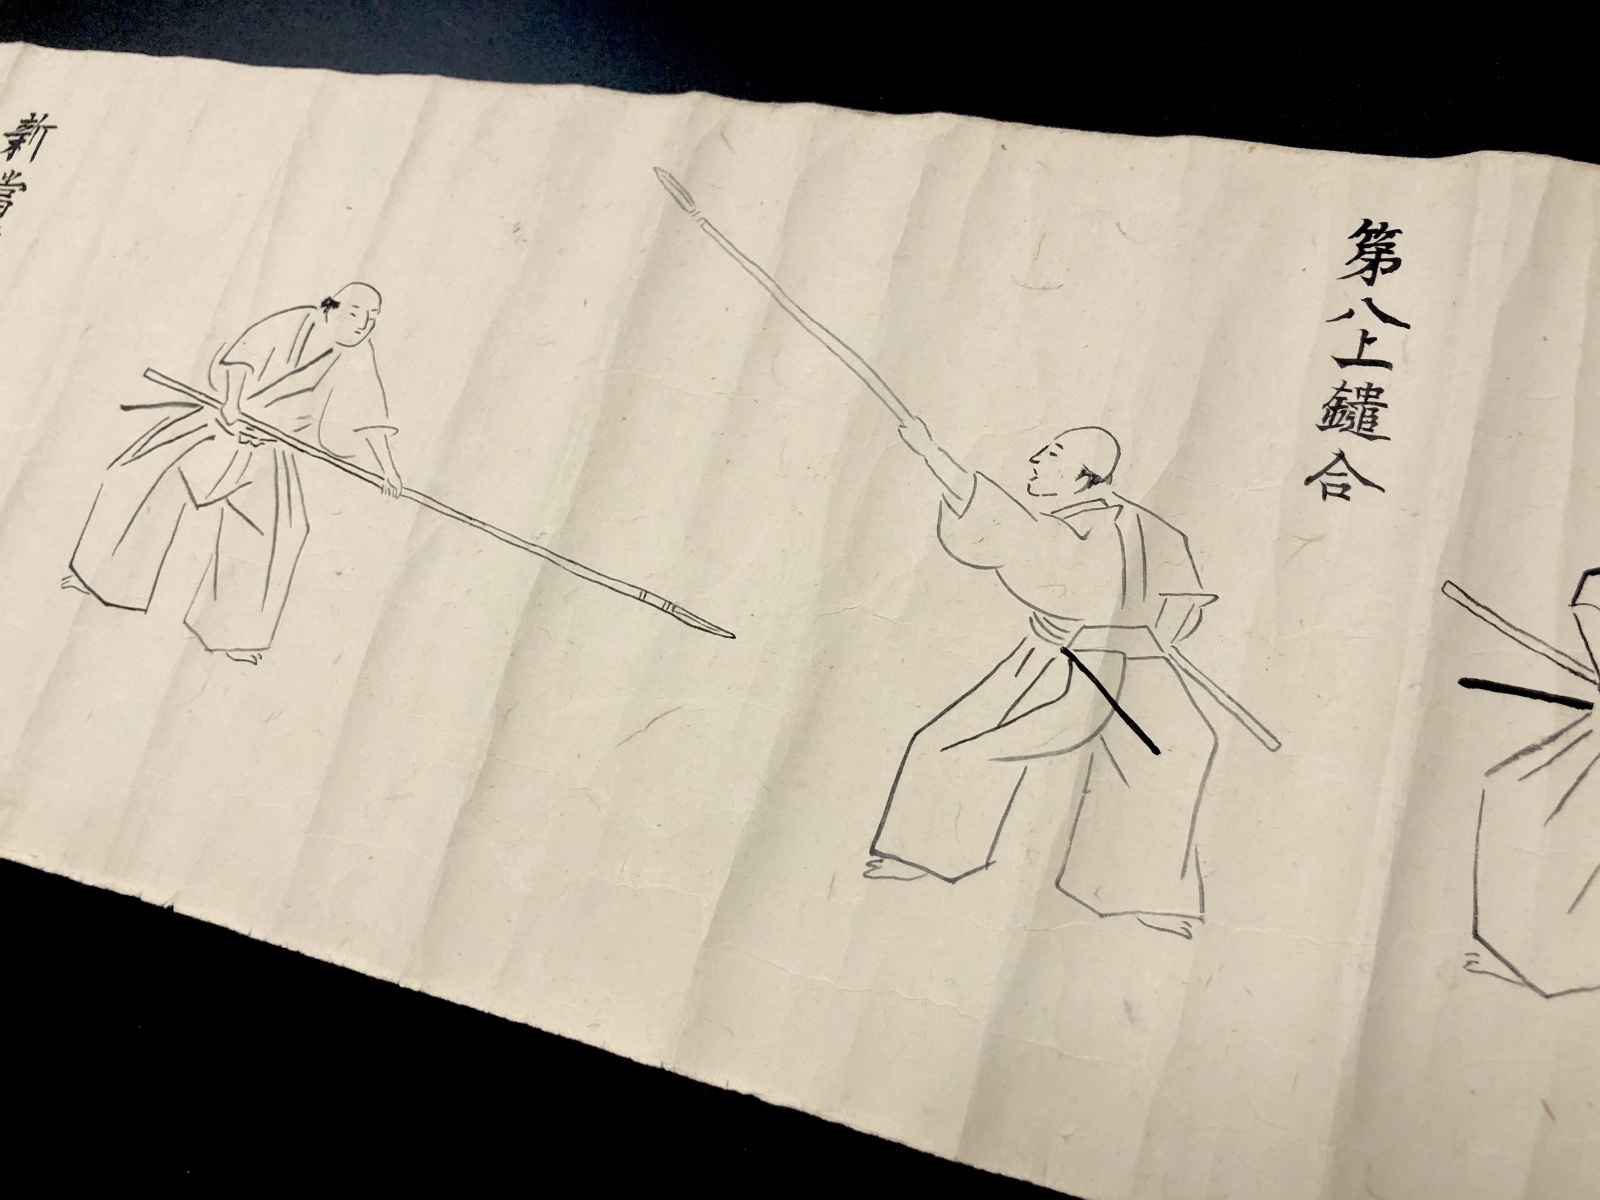 第八上鑓合
新當